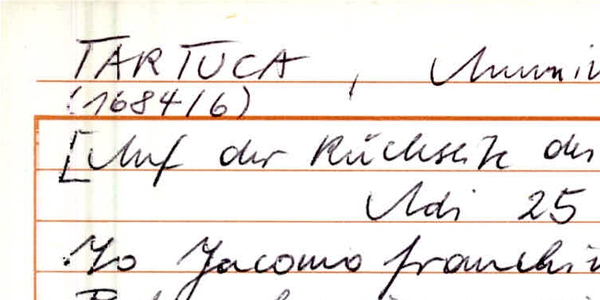 TARTUCA,
(1684/6)
[Auf der Rückseite des
Adi 25
Io Jacomo franchi